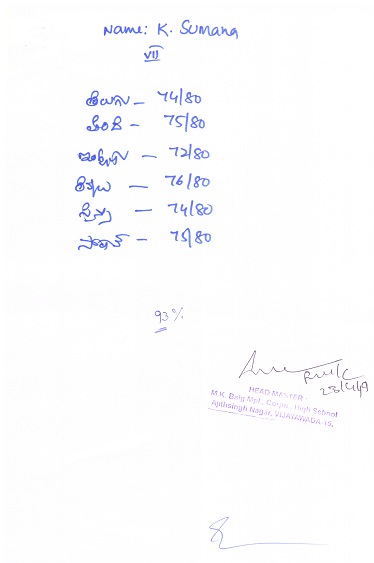 Name: K. Sumana
VII
తెలుగు - 74/80
హిందీ - 75/80
ఇంగ్లీషు - 72/80
లెక్కలు - 76/80
సైన్సు - 74/80
సోషల్ - 75/80
93%
HEAD MASTER
M.K. Baig Mpl., Corpn., High School
Ajithsingh Nagar, VIJAYAWADA-15.